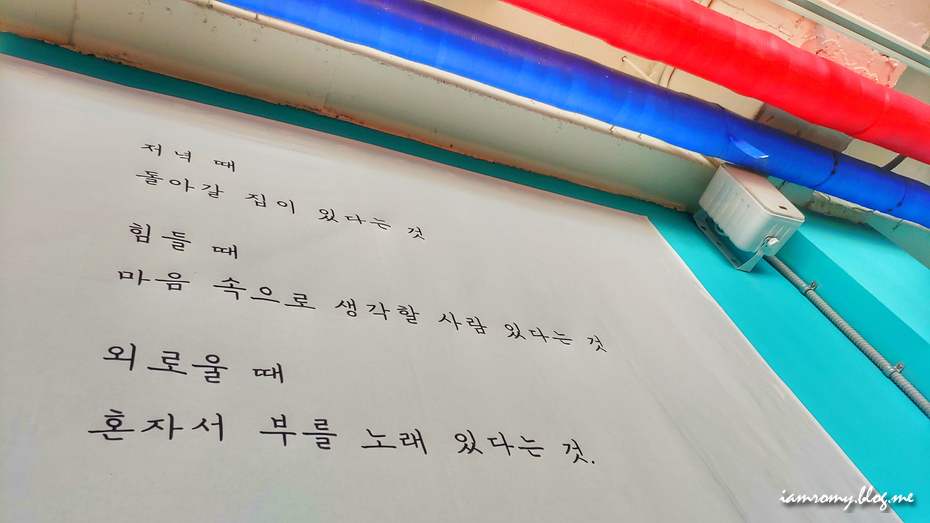 저녁 때
돌아갈 집이 있다는 것
힘들 때
마음 속으로 생각할 사람 있다는 것
외로울 때
혼자서 부를 노래 있다는 것.
iamromy.blog.me